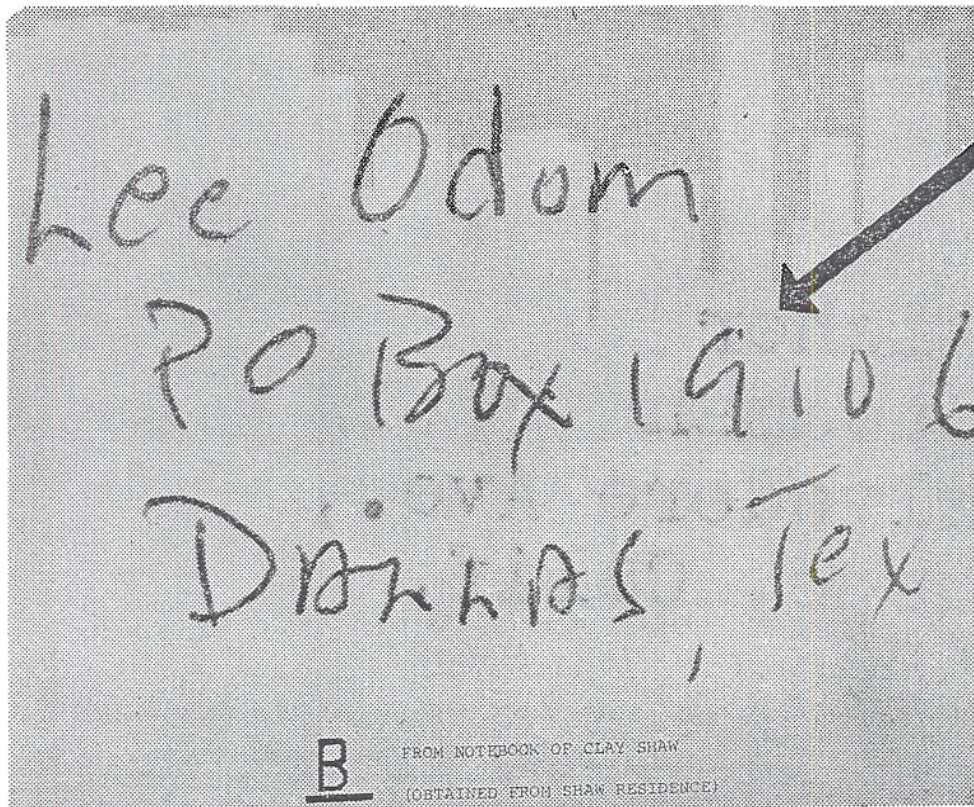 Lee Odom
PO Box 19106
DALLAS, Tex
B
FROM NOTEBOOK OF CLAY SHAW
(OBTAINED FROM SHAW RESIDENCE)